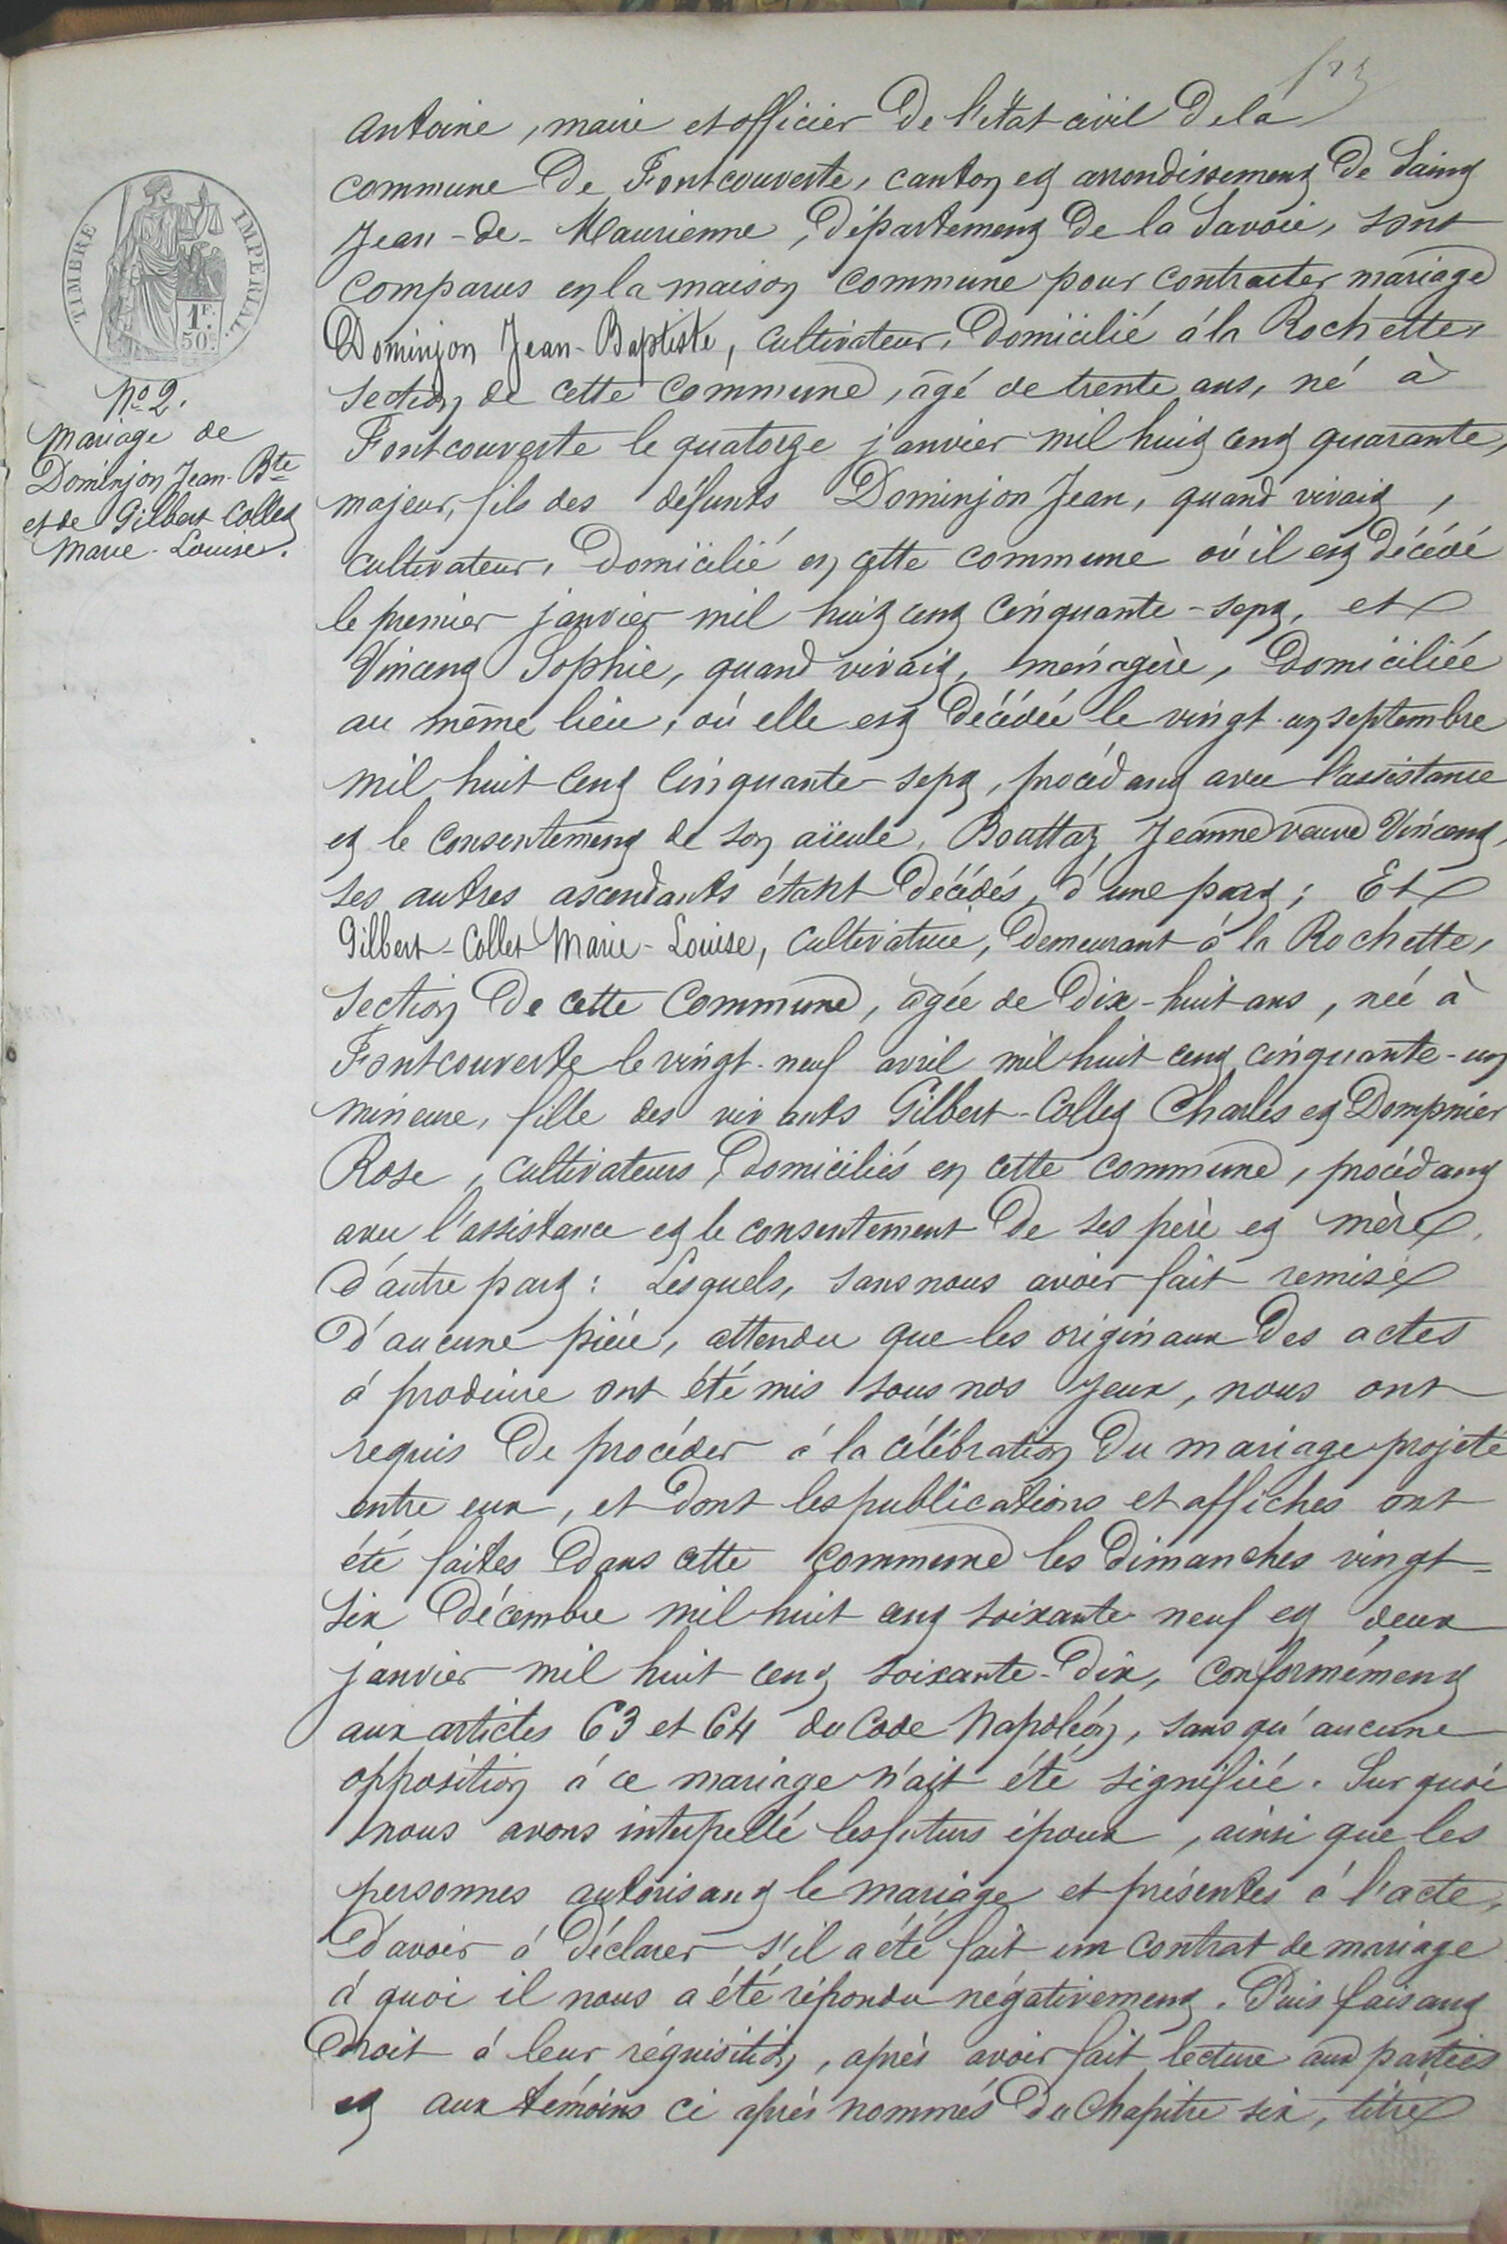 TIMBRE IMPERIAL.
1F.
50c.
No 2.
Mariage de
Dominjon Jean-Bte
et de Gilbert Collet
Marie-Louise.
Antoine, maire et officier de l'état civil de la
commune de Fontcouverte, canton et arrondissement de Saint
Jean-de-Maurienne, département de la Savoie, sont
comparus en la maison commune pour contracter mariage
Dominjon Jean-Baptiste, cultivateur, domicilié à la Rochette,
section de cette commune, âgé de trente ans, né à
Fontcouverte le quatorze janvier mil huit cent quarante,
majeur, fils des défunts Dominjon Jean, quand vivait,
cultivateur, domicilié en cette commune où il est décédé
le premier janvier mil huit cent cinquante-sept, et
Vincent Sophie, quand vivait, ménagère, domiciliée
au même lieu, où elle est décédée le vingt-un septembre
mil huit cent cinquante-sept, procédant avec l'assistance
et le consentement de son aïeule, Bouttaz Jeanne veuve Vincent,
ses autres ascendants étant décédés, d'une part; Et
Gilbert-Collet Marie-Louise, cultivatrice, demeurant à la Rochette,
section de cette commune, âgée de dix-huit ans, née à
Fontcouverte le vingt-neuf avril mil huit cent cinquante-un
mineure, fille des vivants Gilbert-Collet Charles et Dompnier
Rose, cultivateurs, domiciliés en cette commune, procédant
avec l'assistance et le consentement de ses père et mère,
d'autre part: Lesquels, sans nous avoir fait remise
d'aucune pièce, attendu que les originaux des actes
à produire ont été mis sous nos yeux, nous ont
requis de procéder à la célébration du mariage projeté
entre eux, et dont les publications et affiches ont
été faites dans cette commune les dimanches vingt-
six décembre mil huit cent soixante-neuf et deux
janvier mil huit cent soixante-dix, conformément
aux articles 63 et 64 du Code Napoléon, sans qu'aucune
opposition à ce mariage n'ait été signifiée. Sur quoi
nous avons interpellé les futurs époux, ainsi que les
personnes autorisant le mariage et présentes à l'acte,
d'avoir à déclarer s'il a été fait un contrat de mariage
à quoi il nous a été répondu négativement. Puis faisant
droit à leur réquisition, après avoir fait lecture aux parties
et aux témoins ci après nommés du Chapitre six, titre